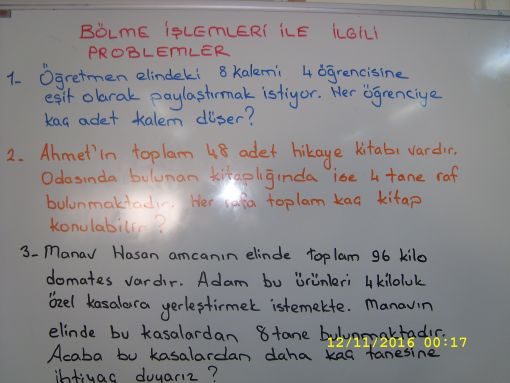 BÖLME İŞLEMLERİ İLE İLGİLİ
PROBLEMLER
1- Öğretmen elindeki 8 kalemi 4 öğrencisine
eşit olarak paylaştırmak istiyor. Her öğrenciye
kaç adet kalem düşer?
2- Ahmet'in toplam 48 adet hikaye kitabı vardır.
Odasında bulunan kitaplığında ise 4 tane raf
bulunmaktadır. Her rafa toplam kaç kitap
konulabilir?
3- Manav Hasan amcanın elinde toplam 96 kilo
domates vardır. Adam bu ürünleri 4 kiloluk
özel kasalara yerleştirmek istemekte. Manavın
elinde bu kasalardan 8 tane bulunmaktadır.
12/11/2016 00:17
Acaba bu kasalardan daha kaç tanesine
ihtiyaç duyarız?